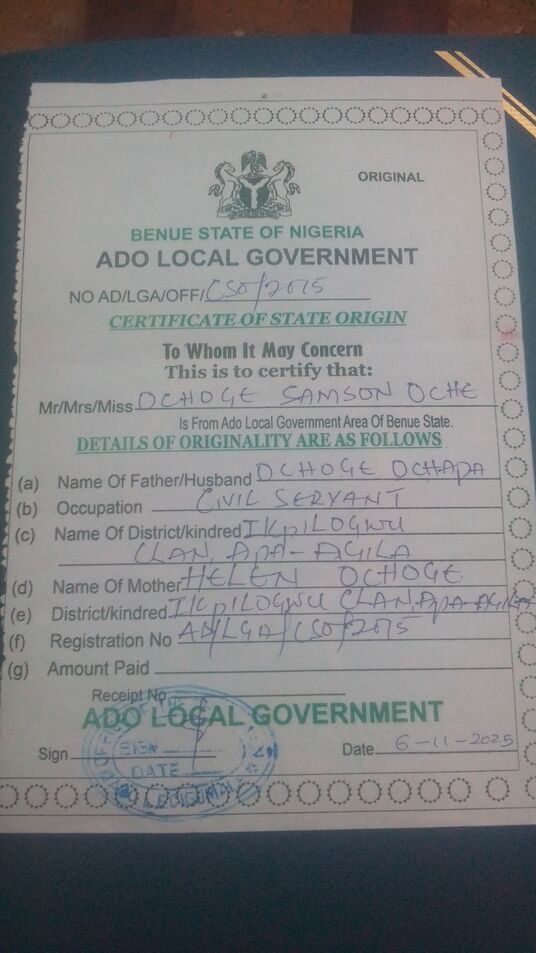 ORIGINAL
BENUE STATE OF NIGERIA
ADO LOCAL GOVERNMENT
NO AD/LGA/OFF/CSO/2075
CERTIFICATE OF STATE ORIGIN
To Whom It May Concern
This is to certify that:
Mr/Mrs/Miss OCHOGE SAMSON OCHE
Is From Ado Local Government Area Of Benue State.
DETAILS OF ORIGINALITY ARE AS FOLLOWS
(a) Name Of Father/Husband OCHOGE OCHAPA
(b) Occupation CIVIL SERVANT
(c) Name Of District/kindred IKPILOGWU
CLAN, APA-AGILA
(d) Name Of Mother HELEN OCHOGE
(e) District/kindred IKPILOGWU CLAN APA-AGILA
(f) Registration No AD/LGA/CSO/2075
(g) Amount Paid
Receipt No.
ADO LOCAL GOVERNMENT
Sign
Date 6-11-2025
OFFICE OF THE
SIGN
DATE